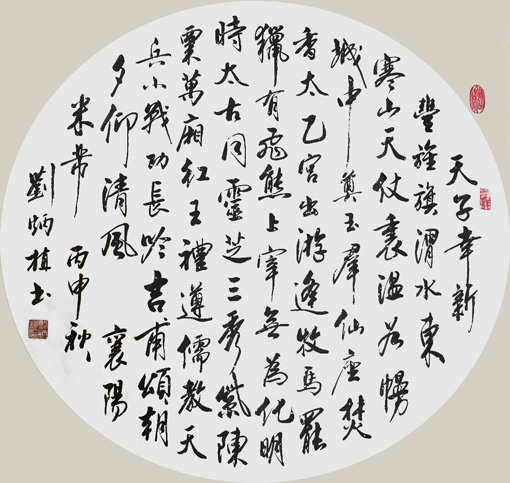 天子幸新
豐旌旗渭水東
寒山天仗裏溫谷幔
城中奠玉羣仙座焚
香太乙宮出游逢牧馬罷
獵有飛熊上宰無為化明
時太古同靈芝三秀紫陳
粟萬廂紅王禮遵儒教天
兵小戰功長吟吉甫頌朝
夕仰清風 襄陽
米芾 丙申秋
劉炳植书